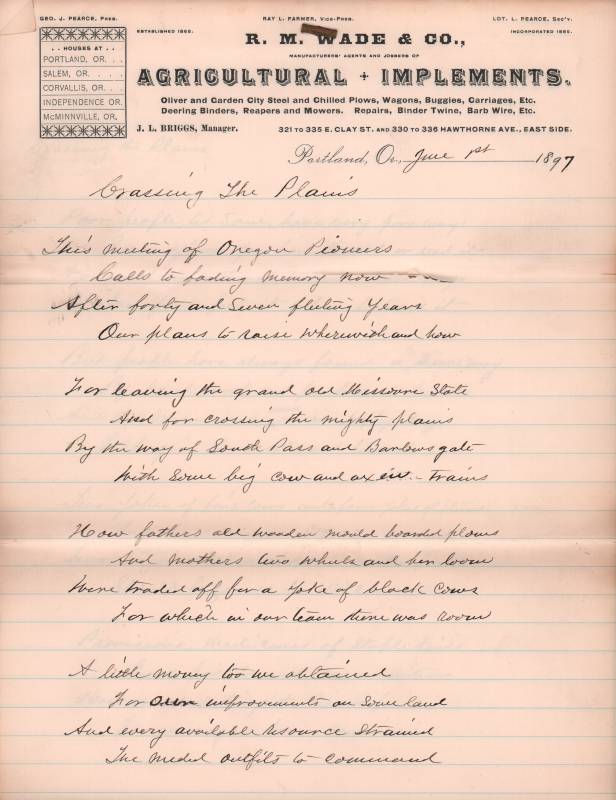 GEO. J. PEARCE, Pres. RAY L. FARMER, Vice-Pres. LOT. L. PEARCE, Sec'y.
ESTABLISHED 1865. INCORPORATED 1885.
R. M. WADE & CO.,
MANUFACTURERS' AGENTS AND JOBBERS OF
AGRICULTURAL + IMPLEMENTS.
Oliver and Garden City Steel and Chilled Plows, Wagons, Buggies, Carriages, Etc.
Deering Binders, Reapers and Mowers. Repairs, Binder Twine, Barb Wire, Etc.
. . HOUSES AT . .
PORTLAND, OR. . .
SALEM, OR. . . .
CORVALLIS, OR. . .
INDEPENDENCE OR.
McMINNVILLE, OR.
J. L. BRIGGS, Manager. 321 TO 335 E. CLAY ST. AND 330 TO 336 HAWTHORNE AVE., EAST SIDE.
Portland, Or., June 1st 1897
Crossing The Plains
This meeting of Oregon Pioneers
Calls to fading memory now
After forty and Seven fleeting Years
Our plans to raise wherewith and how
For leaving the grand old Missouri State
And for crossing the mighty plains
By the way of South Pass and Barlows gate
With Some big cow and oxen trains
How fathers old wooden mould boarded plows
And mothers two wheels and her loom
Were traded off for a yoke of black cows
For which in our team there was room
A little money too we obtained
For our improvements on Some land
And every available resource Strained
The needed outfits to command